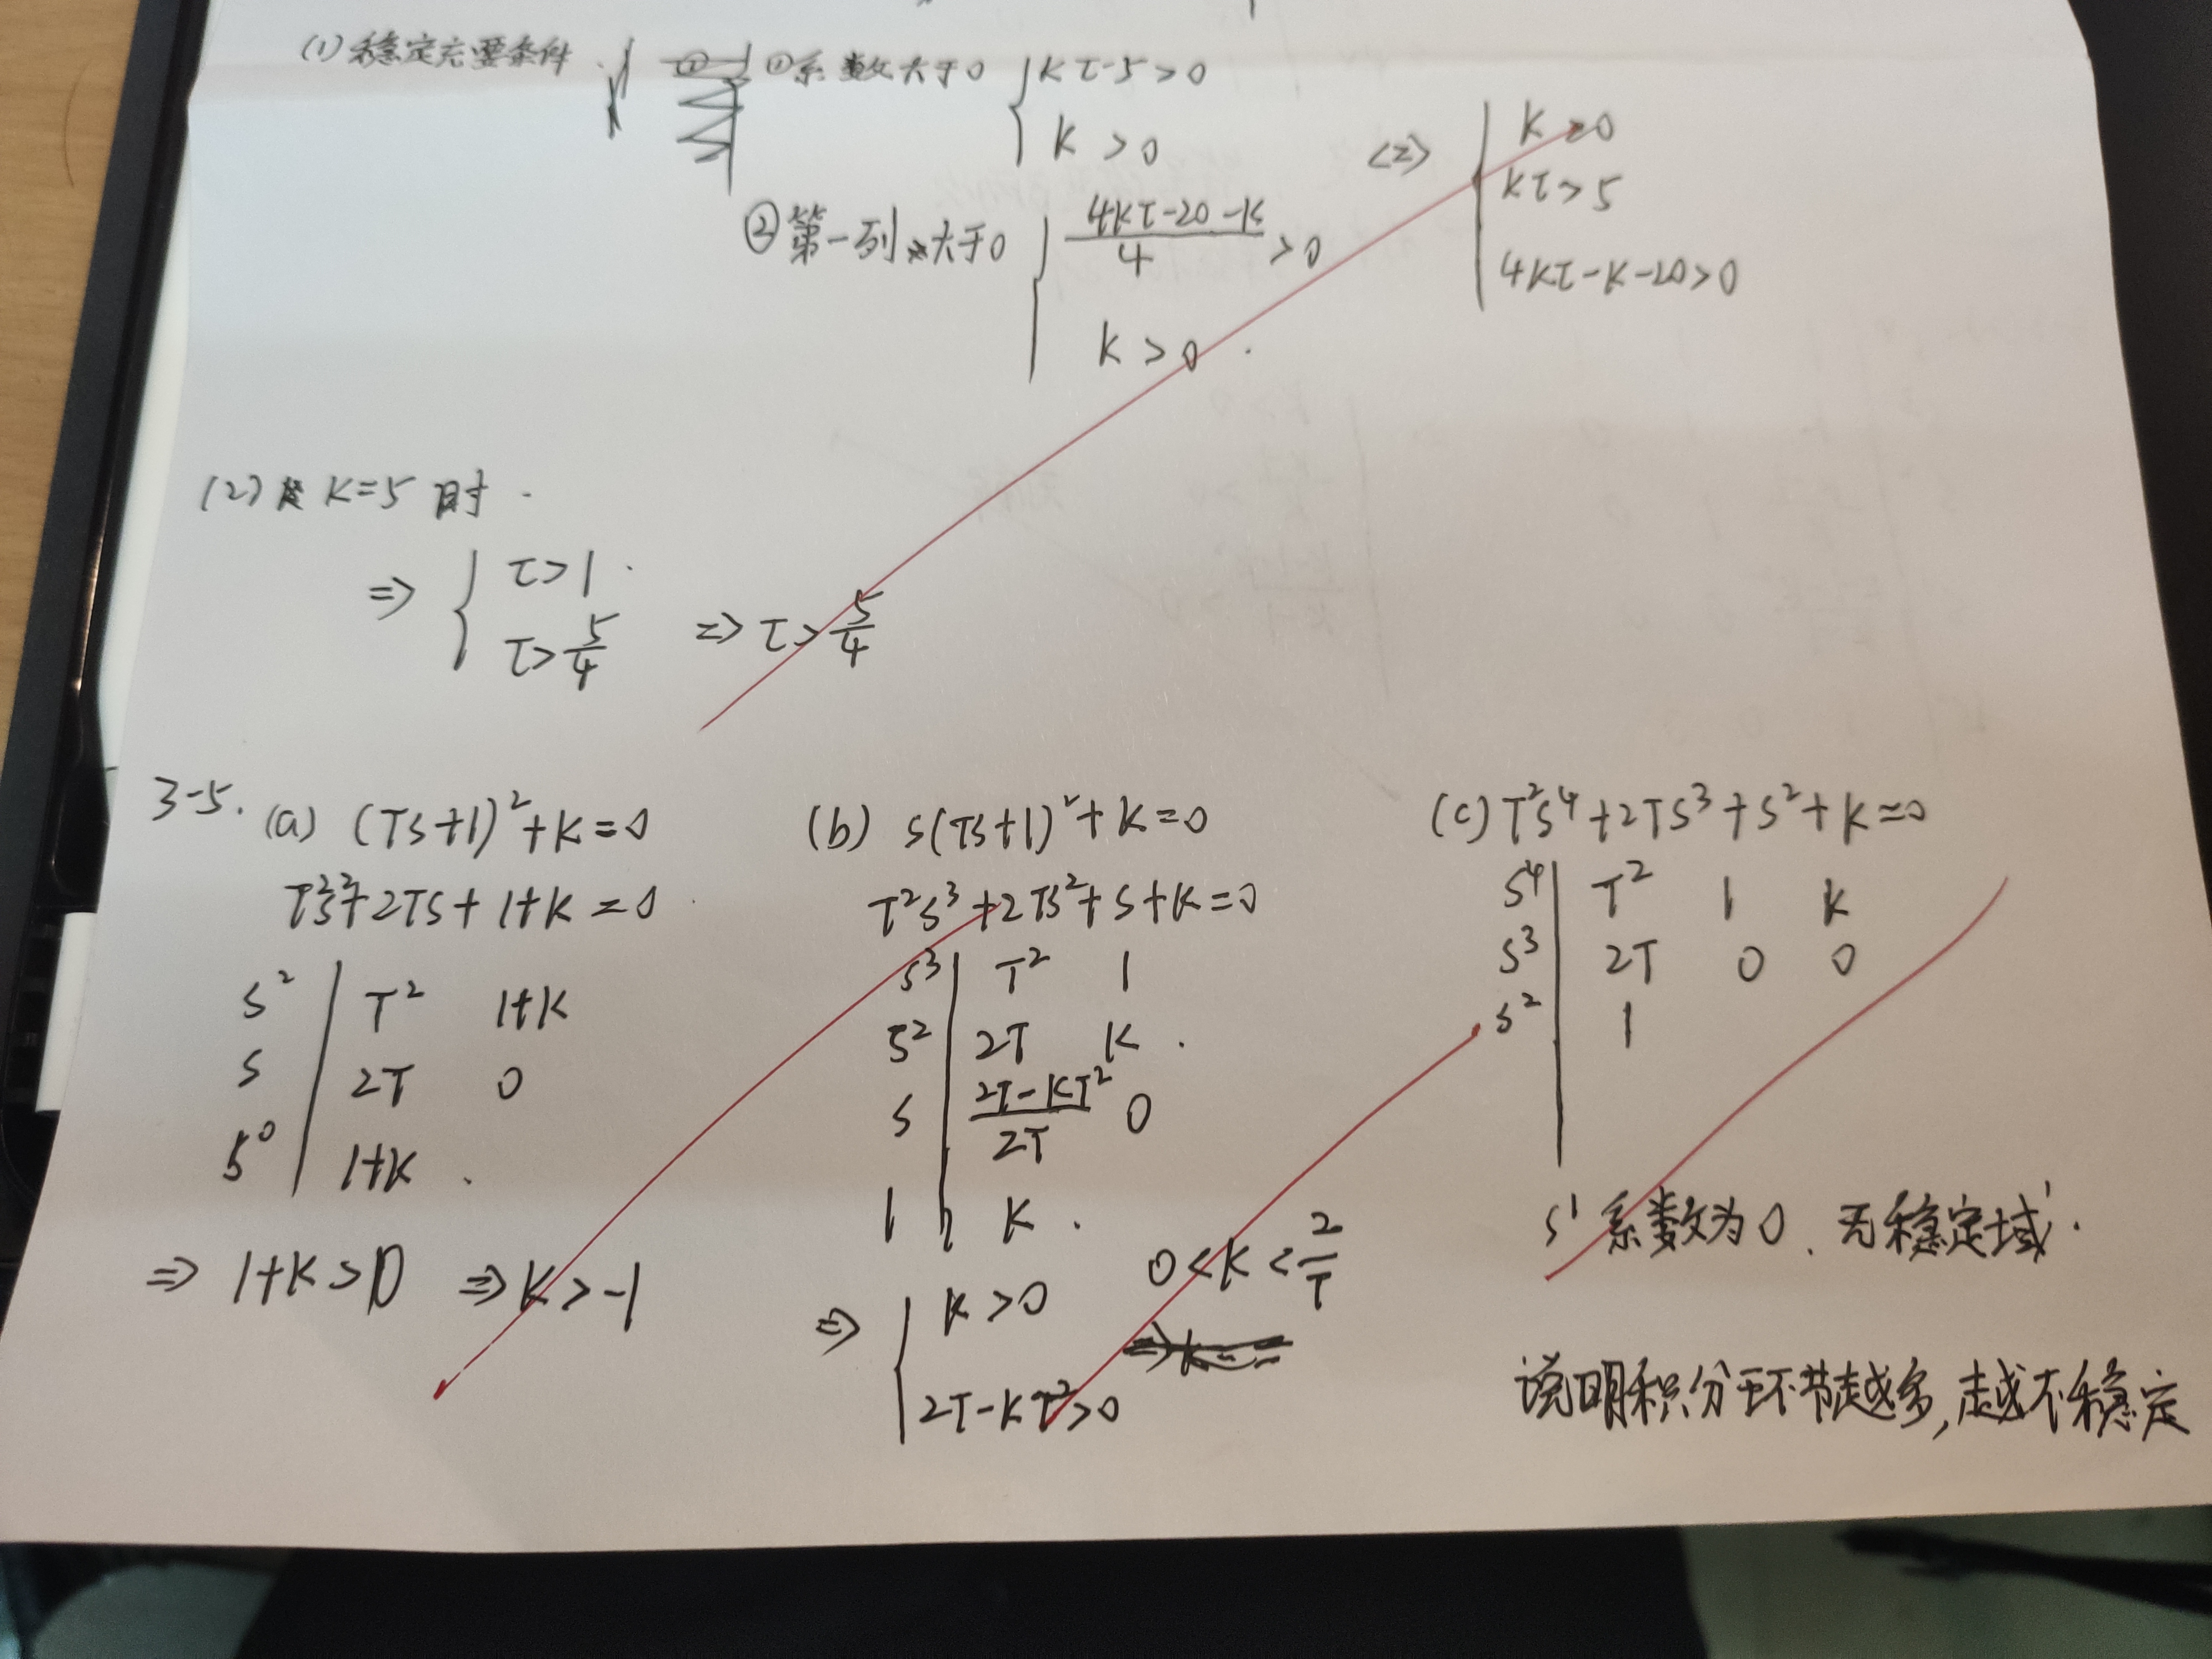 (1) 稳定充要条件. ①系数大于0 { kτ-5>0
k>0
②第一列大于0 { (4kτ-20-k)/4 >0
k>0.
<=> { k>0
kτ>5
4kτ-k-20>0
(2) k=5时.
=> { τ>1.
τ>5/4
=> τ>5/4
3-5. (a) (Ts+1)²+k=0
T²s²+2Ts+1+k=0.
s² | T² 1+k
s | 2T 0
s⁰ | 1+k.
=> 1+k>0 => k>-1
(b) s(Ts+1)²+k=0
T²s³+2Ts²+s+k=0
s³ | T² 1
s² | 2T k
s | (2T-kT²)/2T 0
1 | k.
=> { k>0
2T-kT²>0
0<k<2/T
(c) T²s⁴+2Ts³+s²+k=0
s⁴ | T² 1 k
s³ | 2T 0 0
s² | 1
s¹系数为0. 无稳定域.
说明积分环节越多,越不稳定